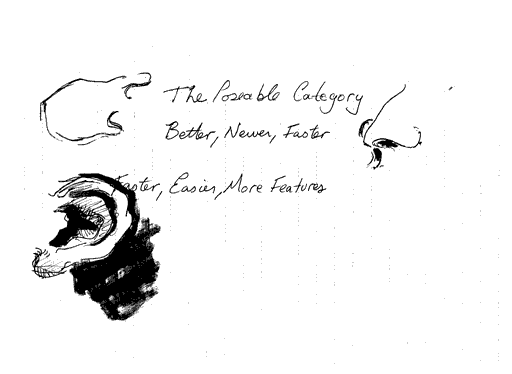 The Poseable Category
Better, Newer, Faster
Faster, Easier, More Features